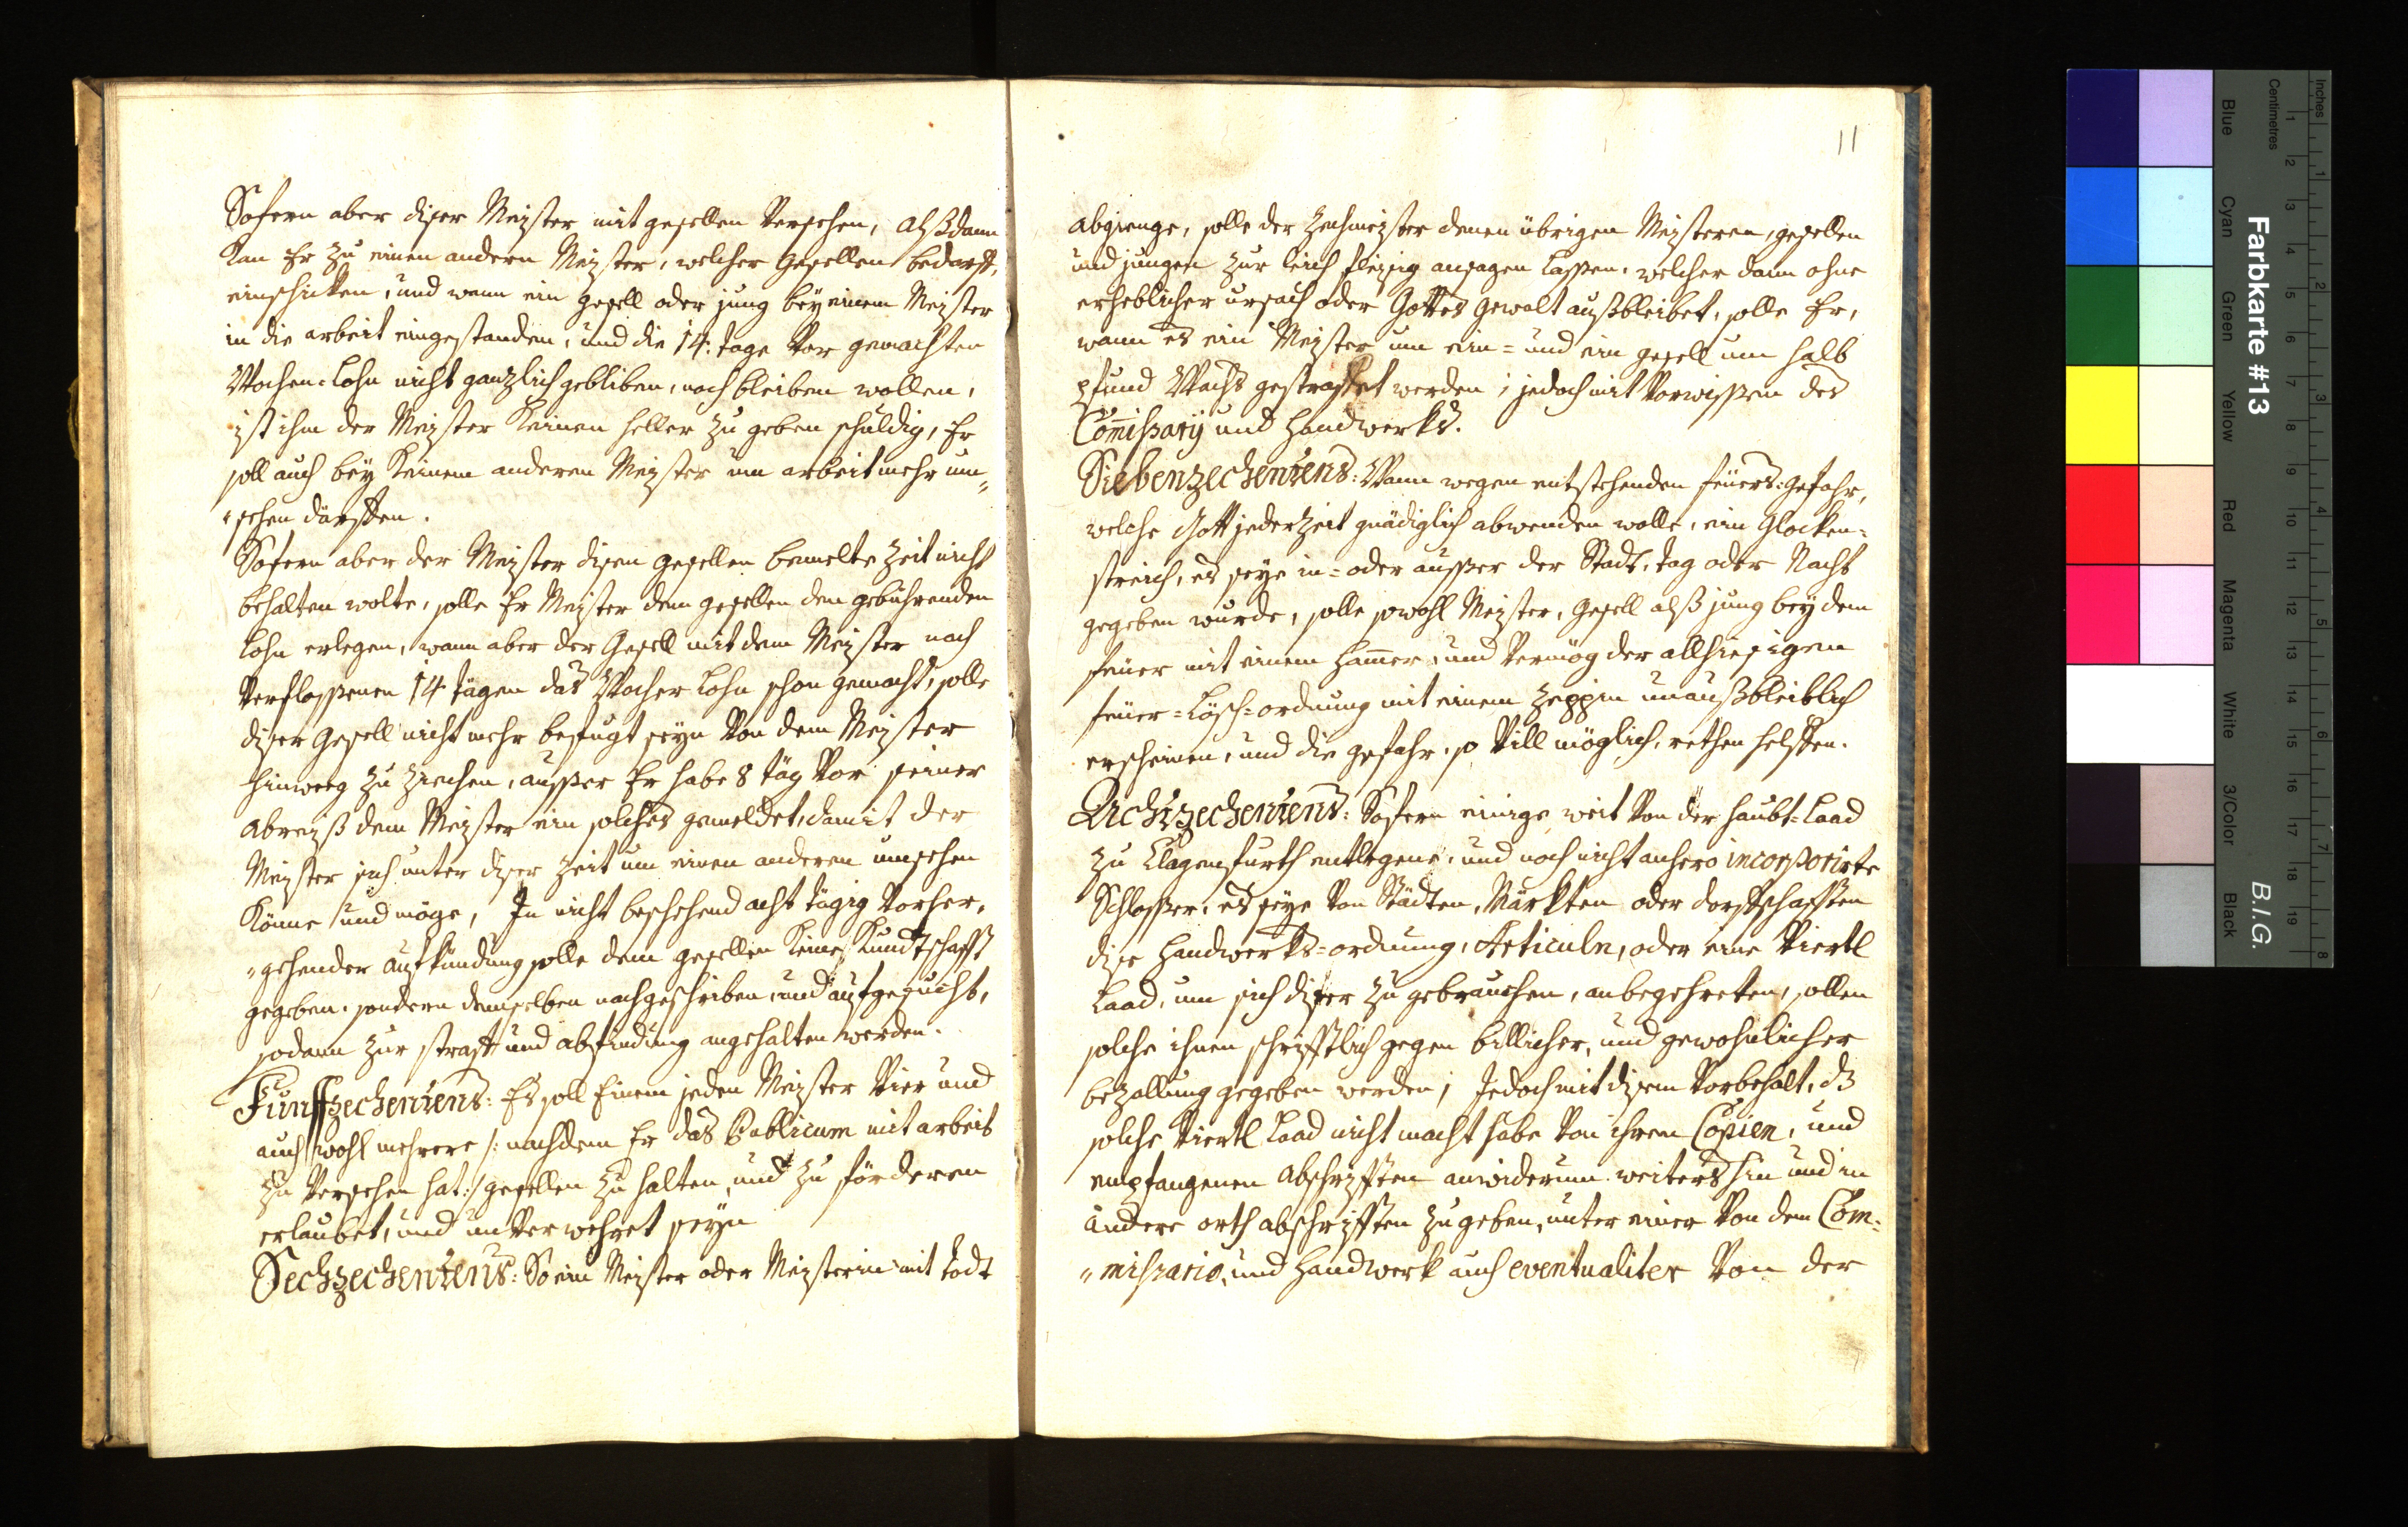 Sofern aber diser Meister mit gesellen Versehen, alßdann
Kan Er zu einen andern Meister, welcher Gesellen bedarff,
einschicken, und wann ein gesell oder jung bey einem Meister
in die arbeit eingestanden, und die 14. tage Vor gemachten
Wochen-Lohn nicht gänzlich gebliben, noch bleiben wollen,
ist ihm der Meister Keinen heller zu geben schuldig, Er
soll auch bey Keinem anderen Meister um arbeit mehr um„
„sehen därffen.
Sofern aber der Meister disem gesellen bemelte Zeit nicht
behalten wolte, solle Er Meister dem gesellen den gebührenden
Lohn erlegen, wann aber der Gesell mit dem Meister nach
Verflossenen 14 tägen das Wochen Lohn schon gemacht, solle
diser Gesell nicht mehr befugt seyn Von dem Meister
hinweg zu ziechen, ausser Er habe 8 täg Vor seiner
abreiß dem Meister ein solches gemeldet, damit der
Meister sich unter diser Zeit um einen anderen umsehen
Könne und möge, In nicht beschehend acht tägig Vorher„
„gehender aufkündung solle dem gesellen Keine Kundtschafft
gegeben, sondern demselben nachgeschriben, und aufgesucht,
sodann zur straff und abfindung angehalten werden.
Fünffzechentens: Es soll Einem jeden Meister Vier und
auch wohl mehrere /: nachdem Er das Publicum mit arbeit
zu Versehen hat :/ gesellen zu halten, und zu förderen
erlaubet, und unVerwehret seyn
Sechzechentens: So ein Meister oder Meisterin mit todt
11
abgienge, solle der Zechmeister denen übrigen Meisteren, gesellen
und jungen zur leich fleisig ansagen lassen, welcher dann ohne
erheblicher ursach oder Gottes gewalt außbleibet, solle Er,
wann es ein Meister um ein= und ein gesell um halb
pfund Wachs gestraffet werden; jedoch mit Vorwissen des
Com̄issarij und Handwerks.
Siebenzechentens: Wann wegen entstehenden feüers-gefahr,
welche Gott jederzeit gnädiglich abwenden wolle, ein Glocken=
streich, es seye in= oder ausser der Stadt, tag oder Nacht
gegeben wurde, solle sowohl Meister, Gesell alß jung bey dem
feüer mit einem ham̄er, und Vermög der allhiesigen
feüer=Lösch=ordnung mit einem Zeppin unaußbleiblich
erscheinen, und die gefahr, so Vill möglich, rethen helffen.
Achtzechentens: Sofern einige weit Von der haubt=Laad
zu Clagenfurth entlegene, und noch nicht anhero incorporirte
Schlosser, es seye Von Städten, Märkten oder dorffschafften
dise Handwerks=ordnung, Articuln, oder eine Viertl
Laad, um sich diser zu gebrauchen, anbegehreten, sollen
solche ihnen schrifftlich gegen billicher, und gewohnlicher
bezallung gegeben werden; Jedoch mit disem Vorbehalt, dz
solche Viertl Laad nicht macht habe Von ihren Copien, und
empfangenen abschrifften anwiderum weiters hin und in
andere orth abschrifften zu geben, unter einer Von dem Com=
„missario, und Handwerk auch eventualiter Von der
Farbkarte #13
B.I.G.
Inches
Centimetres
Blue
Cyan
Green
Yellow
Red
Magenta
White
3/Color
Black